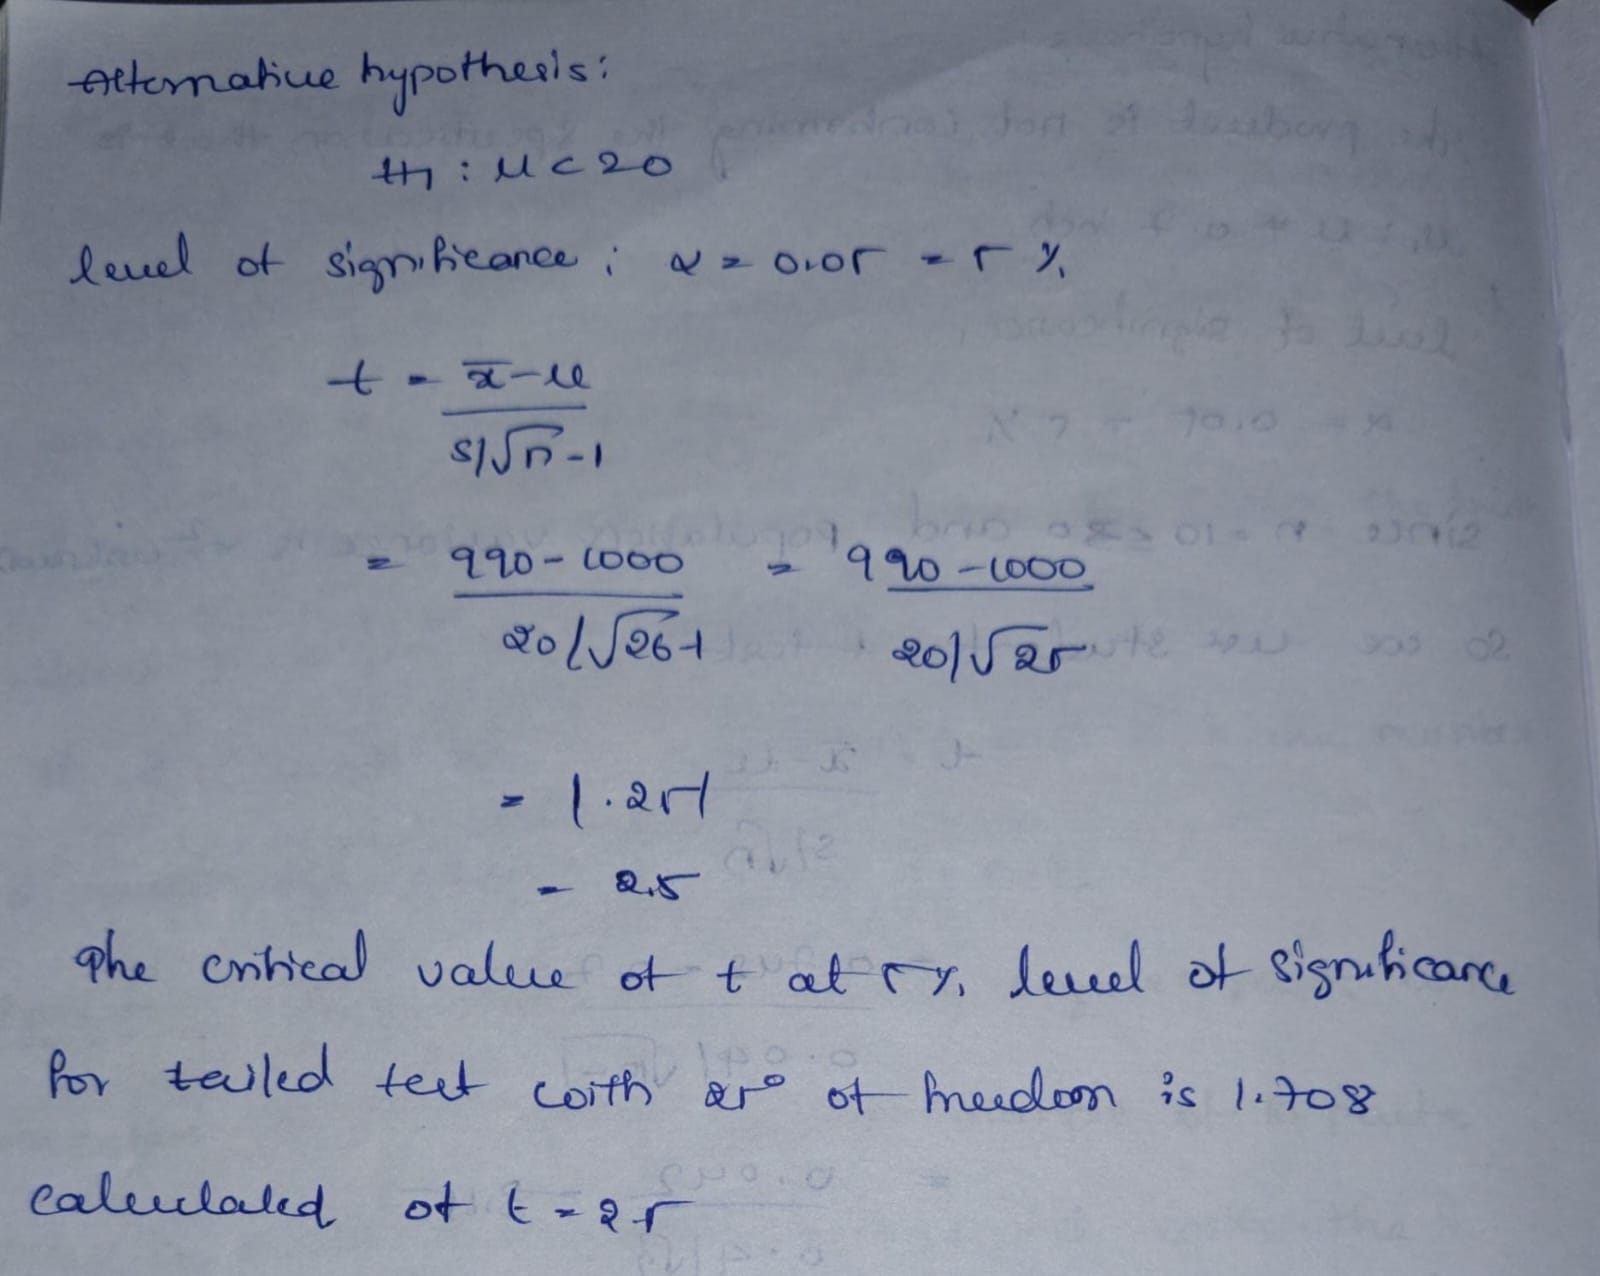 Alternative hypothesis:
H1 : μ < 20
level of significance ; α = 0.05 = 5 %
t = x̄ - μ
s/√n-1
= 990 - 1000 = 990 - 1000
20/√26-1 20/√25
= |.25|
= 2.5
The critical value of t at 5% level of significance
for tailed test with 25° of freedom is 1.708
calculated of t = 25